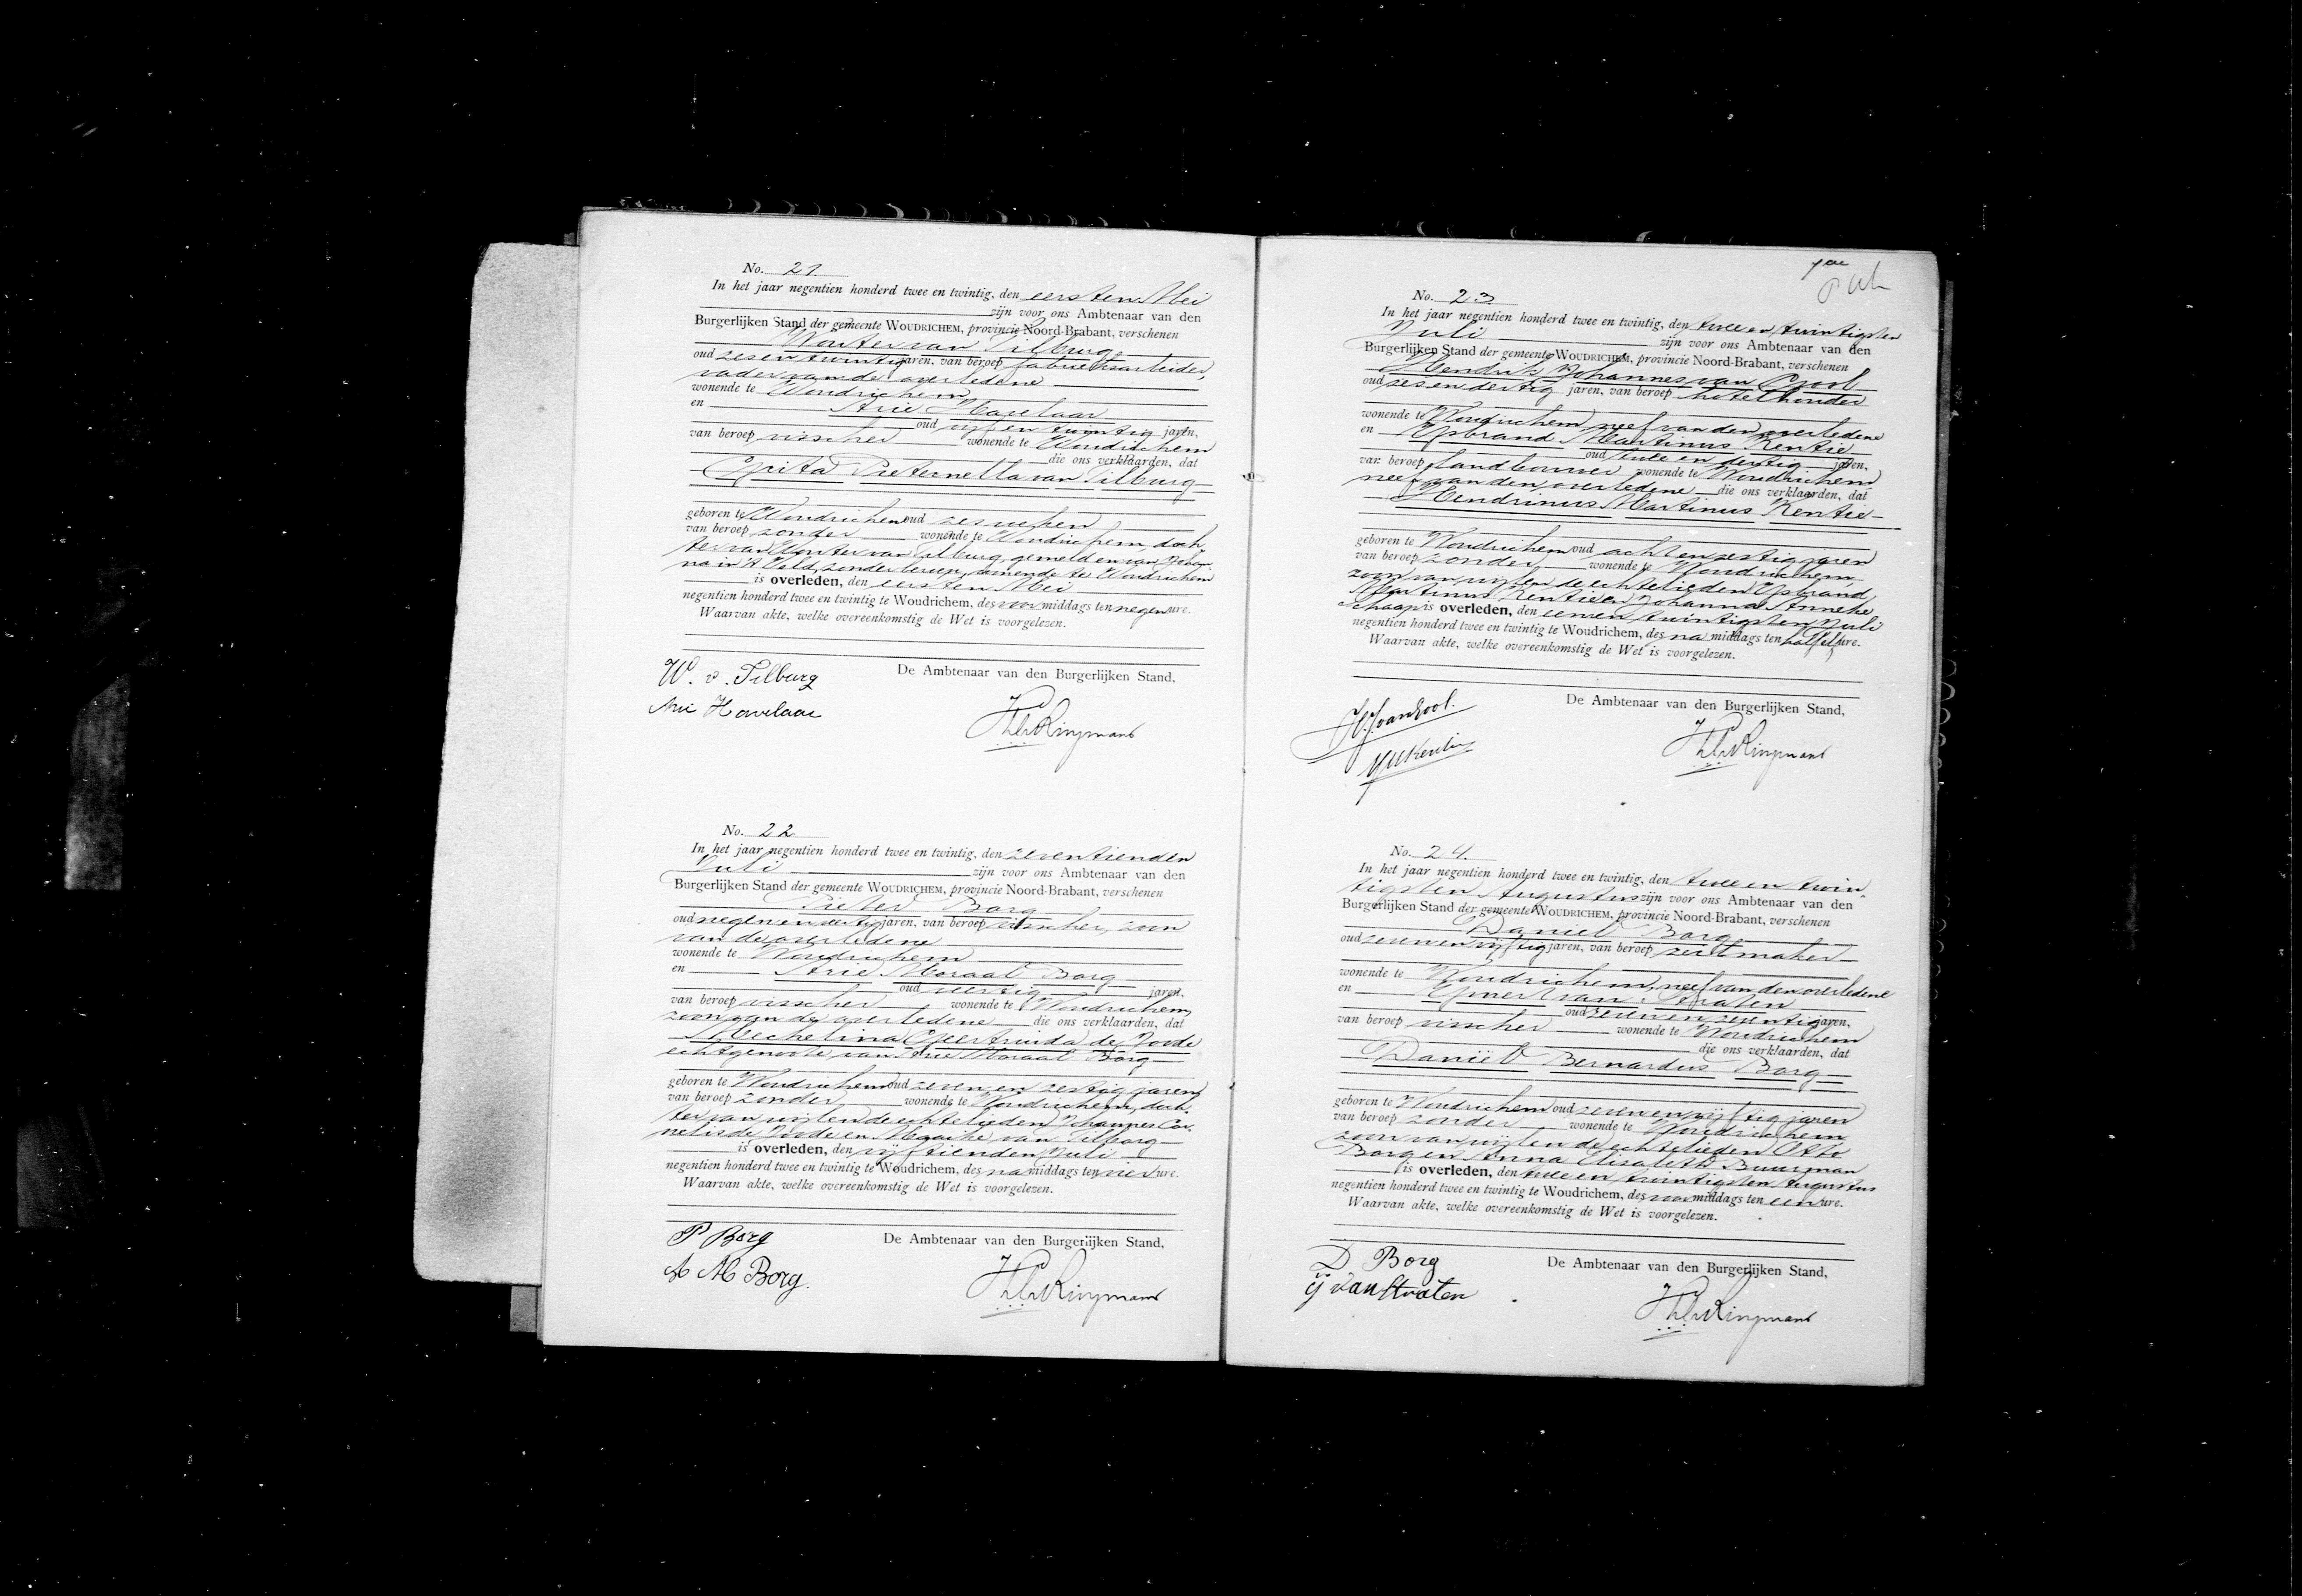 No. 21.
In het jaar negentien honderd twee en twintig, den eersten Mei
zijn voor ons Ambtenaar van den
Burgerlijken Stand der gemeente WOUDRICHEM, provincie Noord-Brabant, verschenen
Wouter van Tilburg
oud zes en twintig jaren, van beroep fabrieksarbeider,
vader van de overledene
wonende te Woudrichem
en Arie Havelaar
oud vijf en twintig jaren,
van beroep visscher wonende te Woudrichem
die ons verklaarden, dat
Grita Pieternella van Tilburg
geboren te Woudrichem oud zes weken
van beroep zonder wonende te Woudrichem, doch
ter van Wouter van Tilburg, gemeld en van Johan
na in 't Veld, zonder beroep, wonende te Woudrichem
is overleden, den eersten Mei
negentien honderd twee en twintig te Woudrichem, des voor middags ten negen ure.
Waarvan akte, welke overeenkomstig de Wet is voorgelezen.
De Ambtenaar van den Burgerlijken Stand,
W. v. Tilburg
Arie Havelaar
No. 22
In het jaar negentien honderd twee en twintig, den zeventienden
Juli zijn voor ons Ambtenaar van den
Burgerlijken Stand der gemeente WOUDRICHEM, provincie Noord-Brabant, verschenen
Pieter Borg
oud negen en veertig jaren, van beroep visscher, zoon
van de overledene
wonende te Woudrichem
en Arie Moraal Borg
oud veertig jaren,
van beroep visscher wonende te Woudrichem,
zoon van de overledene die ons verklaarden, dat
Mechelina Geertruida de Joode
echtgenoote van Arie Moraal Borg
geboren te Woudrichem oud zeven en zestig jaren
van beroep zonder wonende te Woudrichem, doch
ter van wijlen de echtelieden Johannes Cor
nelis de Joode en Maaike van Tilborg
is overleden, den vijftienden Juli
negentien honderd twee en twintig te Woudrichem, des na middags ten vier ure.
Waarvan akte, welke overeenkomstig de Wet is voorgelezen.
De Ambtenaar van den Burgerlijken Stand,
P Borg
A M Borg.
No. 23.
In het jaar negentien honderd twee en twintig, den twee en twintigsten
Juli zijn voor ons Ambtenaar van den
Burgerlijken Stand der gemeente WOUDRICHEM, provincie Noord-Brabant, verschenen
Hendrik Johannes van Gool
oud zes en dertig jaren, van beroep hotelhouder
wonende te Woudrichem, neef van den overledene
en IJsbrand Martinus Kentie
oud twee en dertig jaren,
van beroep landbouwer wonende te Woudrichem
neef van den overledene die ons verklaarden, dat
Hendrinus Martinus Kentie
geboren te Woudrichem oud acht en zestig jaren
van beroep zonder wonende te Woudrichem,
zoon van wijlen de echtelieden IJsbrand
Martinus Kentie en Johanna Anneke
Schaap is overleden, den een en twintigsten Juli
negentien honderd twee en twintig te Woudrichem, des na middags ten half elf ure.
Waarvan akte, welke overeenkomstig de Wet is voorgelezen.
De Ambtenaar van den Burgerlijken Stand,
H.J. van Gool.
No. 24.
In het jaar negentien honderd twee en twintig, den twee en twin
tigsten Augustus zijn voor ons Ambtenaar van den
Burgerlijken Stand der gemeente WOUDRICHEM, provincie Noord-Brabant, verschenen
Daniel Borg
oud zeven en vijftig jaren, van beroep zeilmaker
wonende te Woudrichem, neef van den overledene
en IJmert van Straten
oud zeven en zeventig jaren,
van beroep visscher wonende te Woudrichem
die ons verklaarden, dat
Daniël Bernardus Borg
geboren te Woudrichem oud zeven en vijftig jaren
van beroep zonder wonende te Woudrichem
zoon van wijlen de echtelieden Otto
Borg en Anna Elisabeth Buurman
is overleden, den twee en twintigsten Augustus
negentien honderd twee en twintig te Woudrichem, des voor middags ten een ure.
Waarvan akte, welke overeenkomstig de Wet is voorgelezen.
De Ambtenaar van den Burgerlijken Stand,
D Borg
ij van Straten